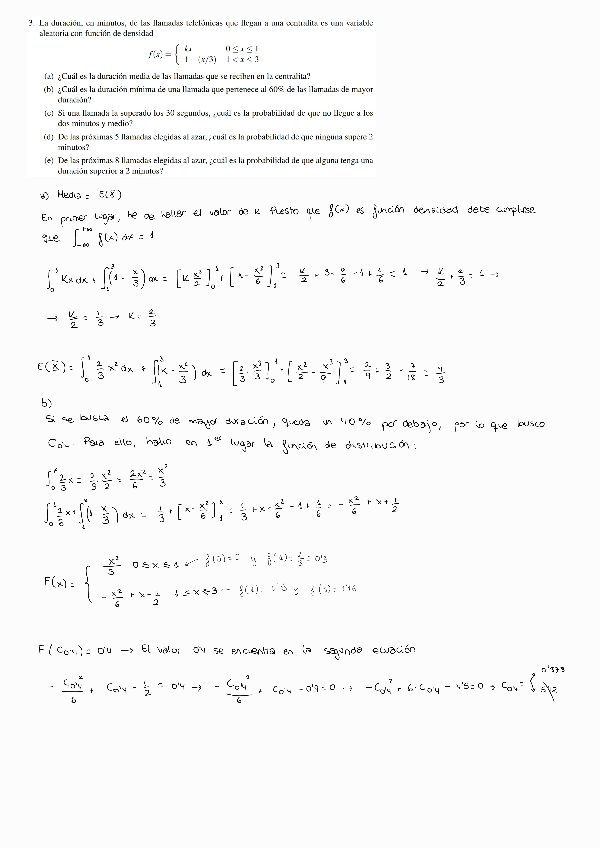 3. La duración, en minutos, de las llamadas telefónicas que llegan a una centralita es una variable
aleatoria con función de densidad
f(x) = { kx 0 ≤ x ≤ 1
1 − (x/3) 1 < x ≤ 3
(a) ¿Cuál es la duración media de las llamadas que se reciben en la centralita?
(b) ¿Cuál es la duración mínima de una llamada que pertenece al 60% de las llamadas de mayor
duración?
(c) Si una llamada ha superado los 30 segundos, ¿cuál es la probabilidad de que no llegue a los
dos minutos y medio?
(d) De las próximas 5 llamadas elegidas al azar, ¿cuál es la probabilidad de que ninguna supere 2
minutos?
(e) De las próximas 8 llamadas elegidas al azar, ¿cuál es la probabilidad de que alguna tenga una
duración superior a 2 minutos?
a) Media = E(X)
En primer lugar, he de hallar el valor de K. Puesto que f(x) es función densidad debe cumplirse
que ∫_{-∞}^{+∞} f(x) dx = 1
∫_0^1 Kx dx + ∫_1^3 (1 - x/3) dx = [K x²/2]_0^1 + [x - x²/6]_1^3 = K/2 + 3 - 9/6 - 1 + 1/6 = 1 → K/2 + 2/3 = 1 →
→ K/2 = 1/3 → K = 2/3
b)
Si se busca el 60% de mayor duración, queda un 40% por debajo, por lo que busco
C₀'₄. Para ello, hallo en 1er lugar la función de distribución:
F(x) = { x²/3 0 ≤ x ≤ 1
- x²/6 + x - 1/2 1 ≤ x ≤ 3
F(C₀'₄) = 0'4 → El valor 0'4 se encuentra en la segunda ecuación
- C₀'₄²/6 + C₀'₄ - 1/2 = 0'4 → - C₀'₄²/6 + C₀'₄ - 0'9 = 0